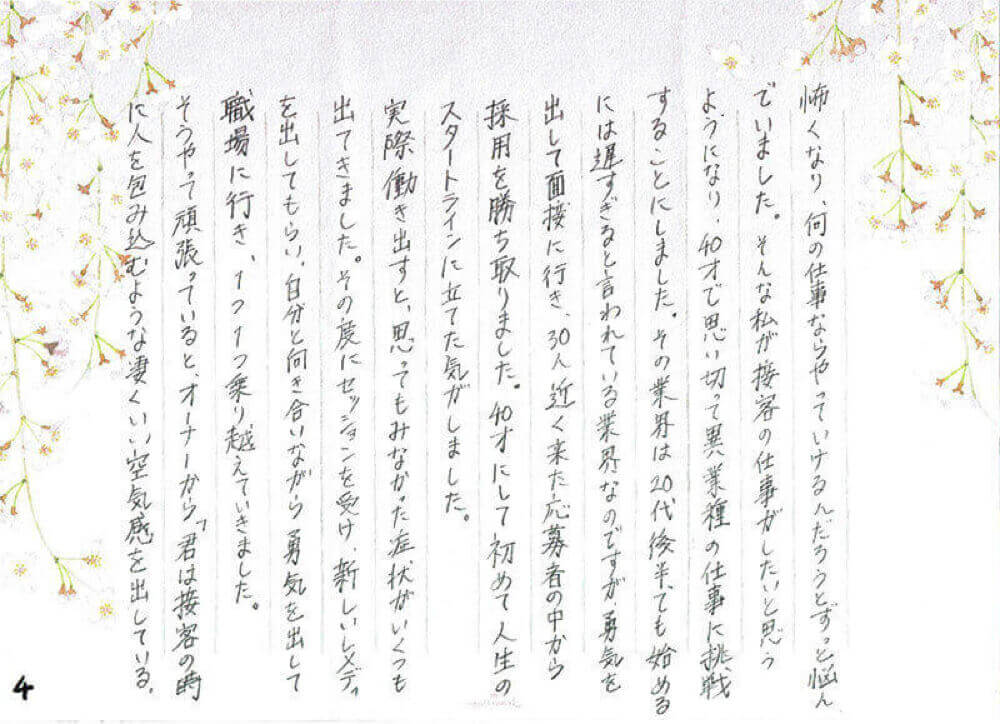 怖くなり、何の仕事ならやっていけるんだろうとずっと悩ん
でいました。そんな私が接客の仕事がしたいと思う
ようになり、40才で思い切って異業種の仕事に挑戦
することにしました。その業界は20代後半でも始める
には遅すぎると言われている業界なのですが勇気を
出して面接に行き、30人近く来た応募者の中から
採用を勝ち取りました。40才にして初めて人生の
スタートラインに立てた気がしました。
実際働き出すと、思ってもみなかった症状がいくつも
出てきました。その度にセッションを受け、新しいレメディ
を出してもらい、自分と向き合いながら勇気を出して
職場に行き、1つ1つ乗り越えていきました。
そうやって頑張っていると、オーナーから「君は接客の時
に人を包み込むような凄くいい空気感を出している。
4